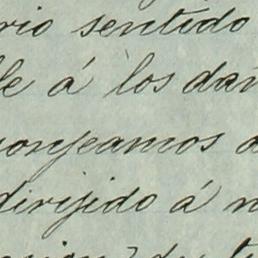 rio sentido
le á los dan
onjeamos a
dirijido á n